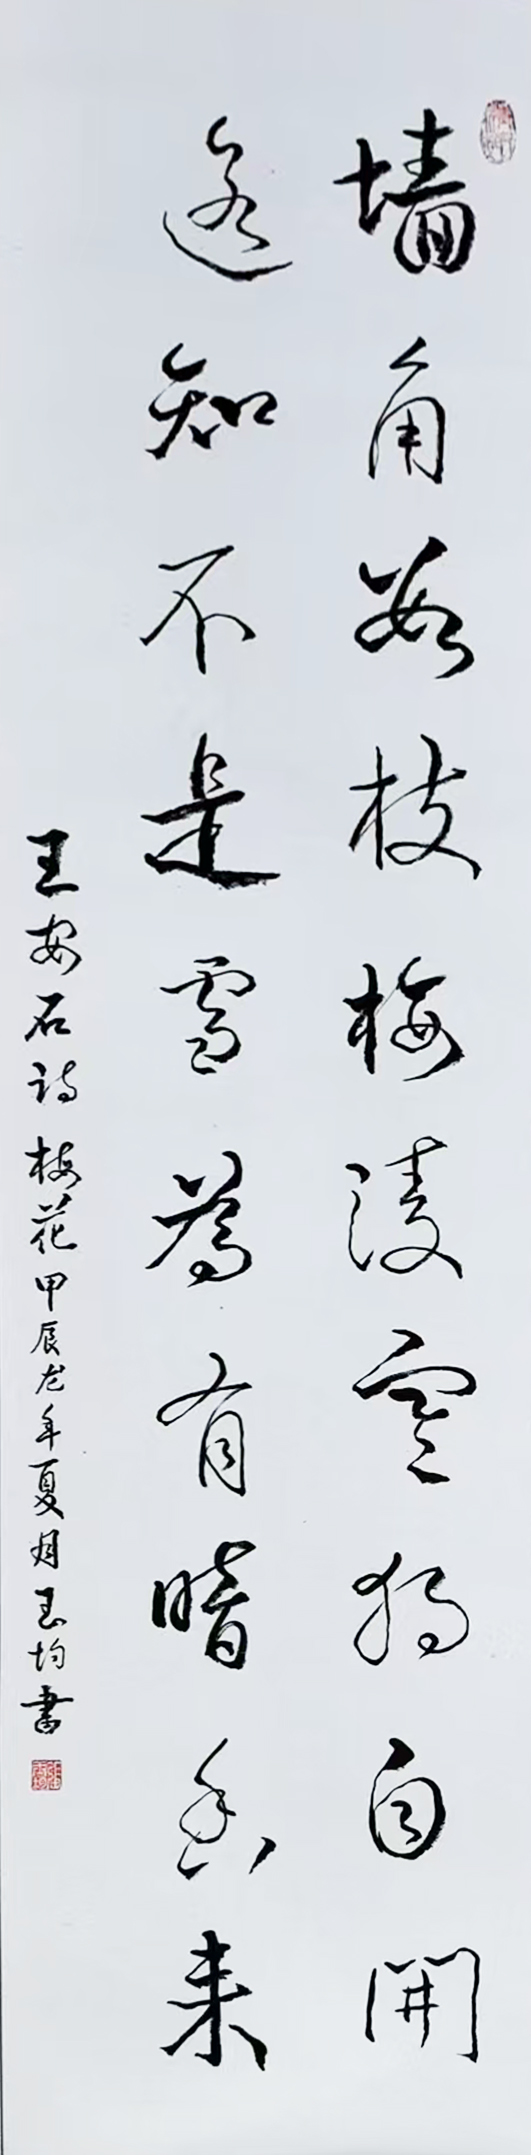 墙角数枝梅凌寒独自開
遥知不是雪為有暗香来
王安石诗梅花甲辰龙年夏月玉均書